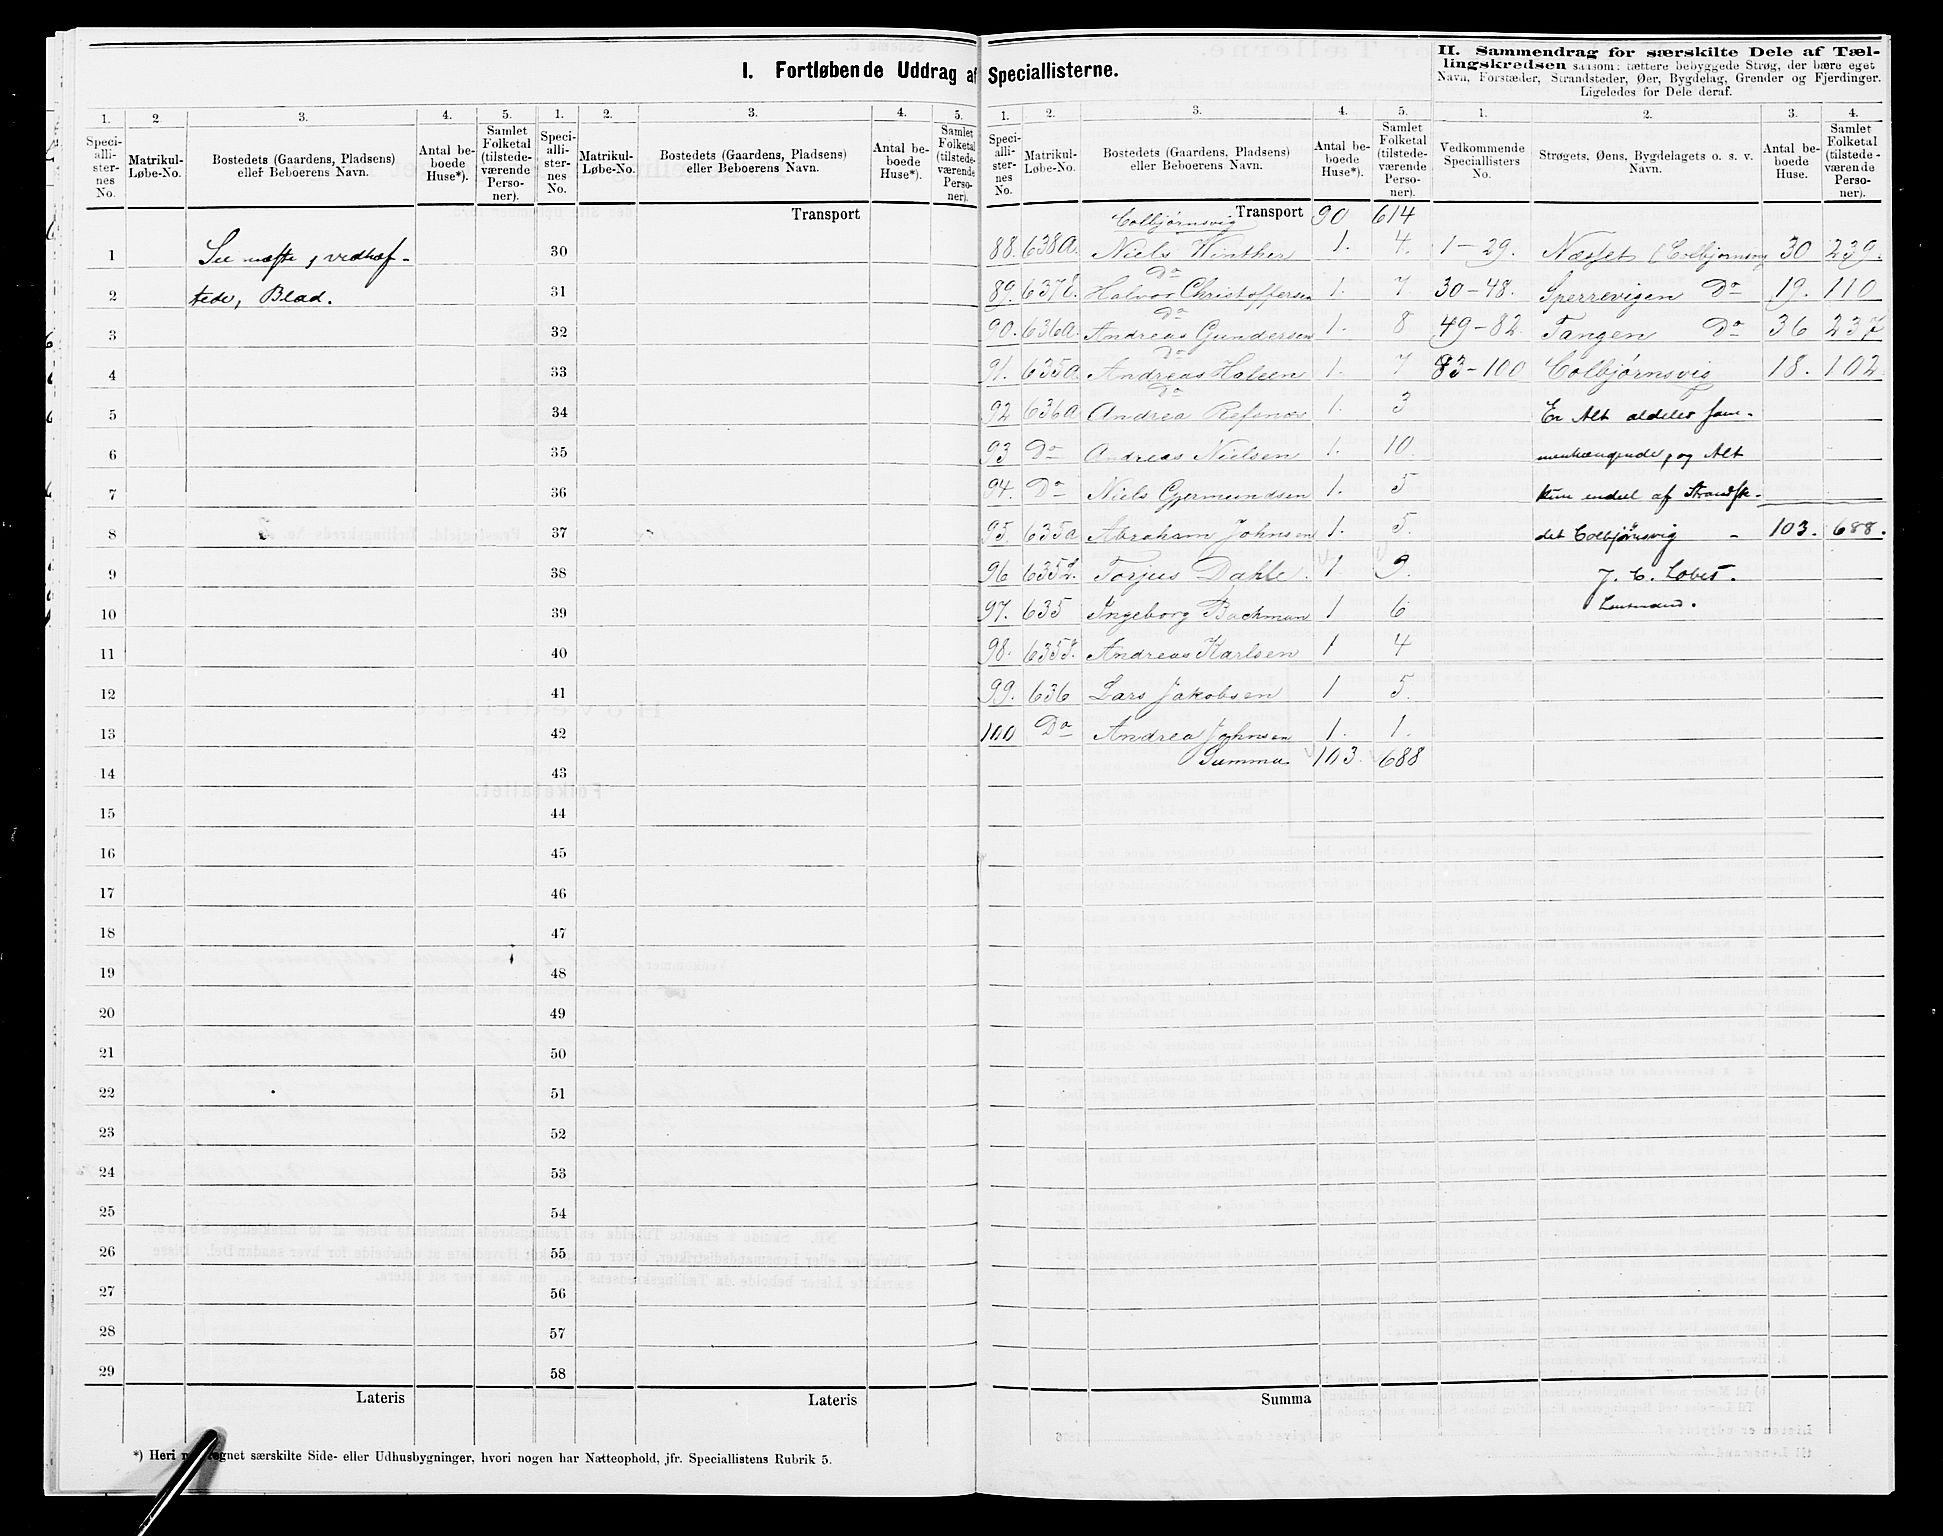 I. Fortløbende Uddrag af Speciallisterne.
1. Speciallisternes No.
2 Matrikul-Løbe-No.
3. Bostedets (Gaardens, Pladsens) eller Beboerens Navn.
4. Antal beboede Huse*).
5. Samlet Folketal (tilstedeværende Personer).
1. Speciallisternes No.
2. Matrikul-Løbe-No.
3. Bostedets (Gaardens, Pladsens) eller Beboerens Navn.
4. Antal beboede Huse*).
5. Samlet Folketal (tilstedeværende Personer).
Transport
1 See næste, vedhæf-
2 tede, Blad.
3
4
5
6
7
8
9
10
11
12
13
14
15
16
17
18
19
20
21
22
23
24
25
26
27
28
29
Lateris
30
31
32
33
34
35
36
37
38
39
40
41
42
43
44
45
46
47
48
49
50
51
52
53
54
55
56
57
58
Lateris
*) Heri regnet særskilte Side- eller Udhusbygninger, hvori nogen har Natteophold, jfr. Speciallistens Rubrik 5.
1. Speciallisternes No.
2. Matrikul-Løbe-No.
3. Bostedets (Gaardens, Pladsens) eller Beboerens Navn.
4. Antal beboede Huse*).
5. Samlet Folketal (tilstedeværende Personer).
Transport 90 614
Colbjørnsvig
88. 638a. Niels Winther 1. 4.
Do
89. 637 Halvor Christoffersen 1. 7
Do
90. 636a. Andreas Gundersen 1. 8
Do
91. 635a. Andreas Haleen 1. 7
Do
92 636a Andrea Refsnes 1. 3
93 Do Andreas Nielsen 1. 10.
94. Do Niels Gjermundsen 1. 5
95. 635a Abraham Johnsen 1. 5.
96 635 Torjus Dahle. 1 9.
97. 635 Ingeborg Backman 1 6
98. 635 Andreas Karlsen 1 4
99. 636 Lars Jakobsen 1 5.
100 Do Andrea Johnsen 1. 1.
Summa 103. 688
Summa
II. Sammendrag for særskilte Dele af Tæl-
lingskredsen saasom: tættere bebyggede Strøg, der bære eget
Navn, Forstæder, Strandsteder, Øer, Bygdelag, Grender og Fjerdinger.
Ligeledes for Dele deraf.
1. Vedkommende Speciallisters No.
2. Strøgets, Øens, Bygdelagets o. s. v. Navn.
3. Antal beboede Huse.
4. Samlet Folketal (tilstedeværende Personer).
1-29. Næsset (Colbjørnsvig 30 239.
30-48. Sperrevigen Do 19. 110
49-82. Tangen Do 36 237
83-100 Colbjørnsvig 18. 102
Er Alt aldeles sam-
menhængende, og Alt
kun endeel af Strandste-
det Colbjørnsvig - 103. 688.
J. C.
Lensmand.